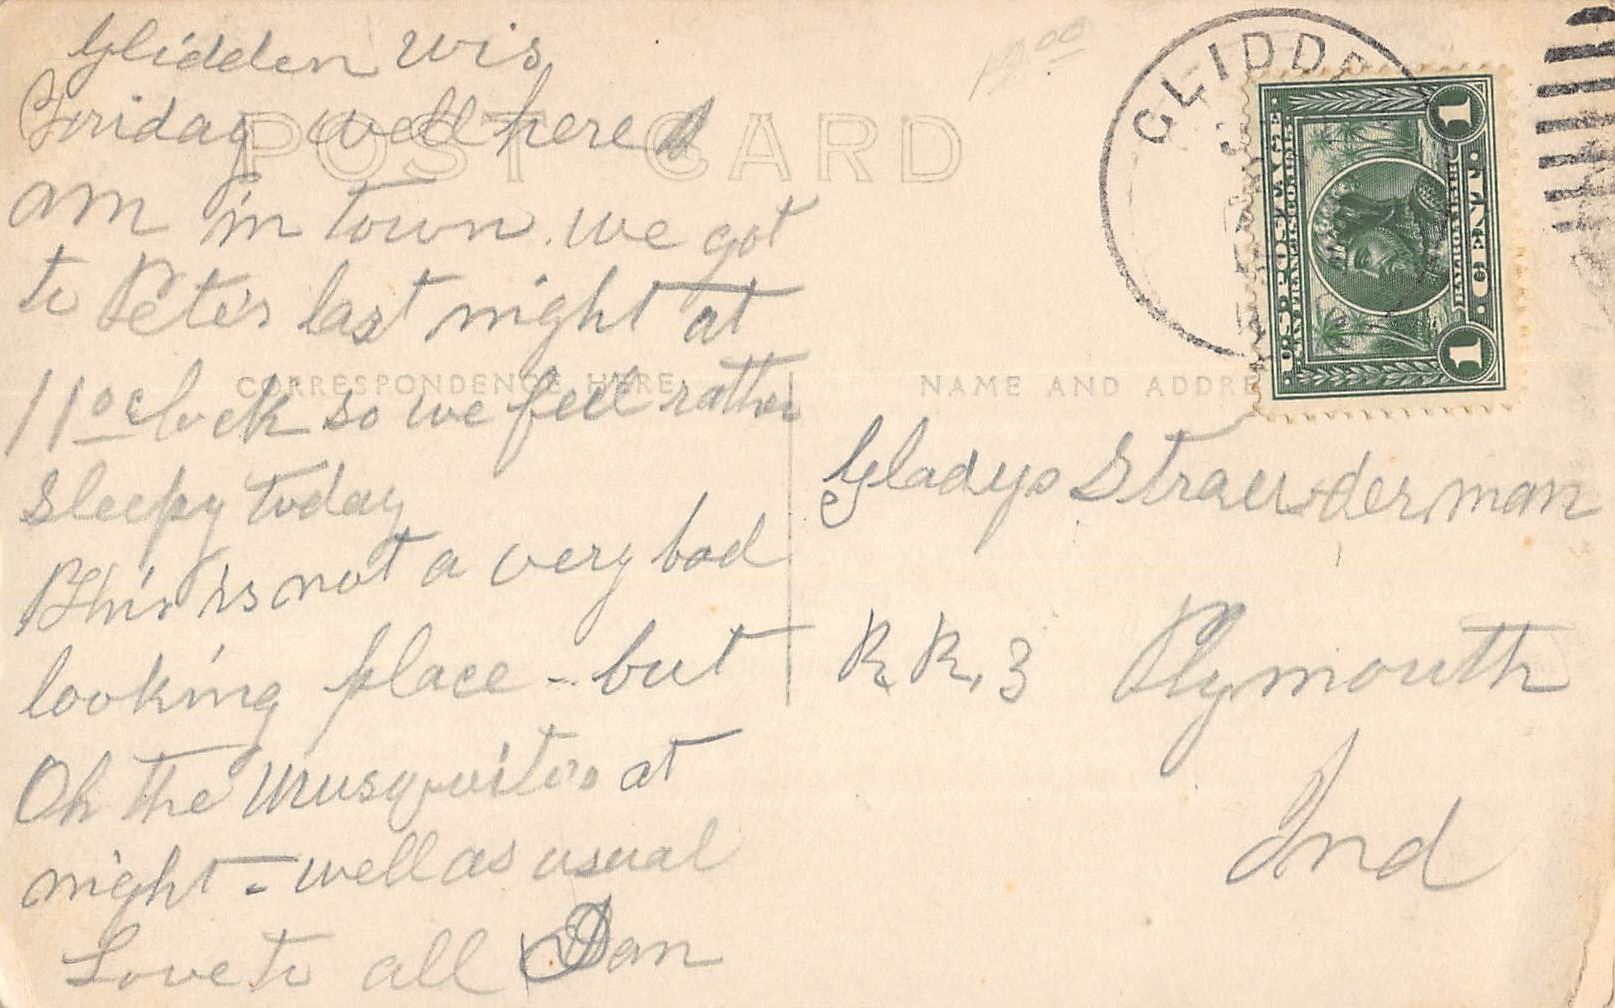 Glidden Wis
Friday well here I
am in town. we got
to Pete's last night at
11 oclock so we feel rather
sleepy today
This is not a very bad
looking place - but
Oh the Musquitos at
night - well as usual
Love to all Dan
12.00
POST CARD
CORRESPONDENCE HERE
NAME AND ADDRE
GLIDDE
U.S. POSTAGE
1 CENT 1
Gladys Strausderman
R. R. 3 Plymouth
Ind